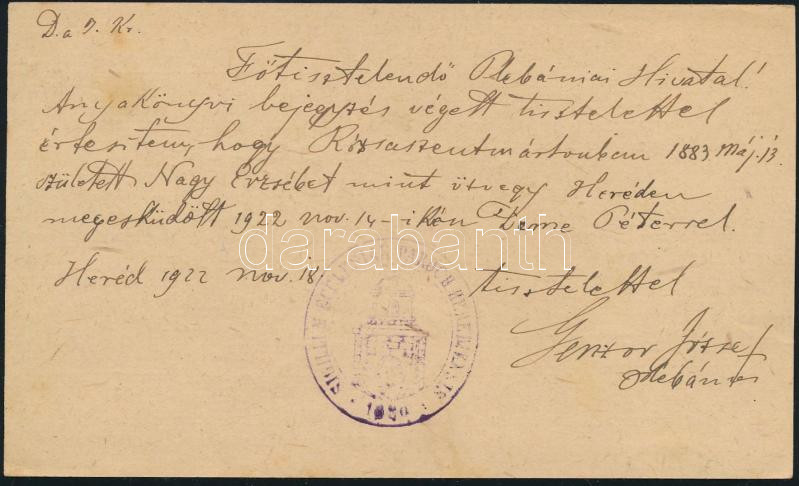 D. a J. Kr.
Főtisztelendő Plebániai Hivatal!
Anyakönyvi bejegyzés végett tisztelettel
értesitem, hogy Rózsaszentmártonban 1883 máj. 13.
született Nagy Erzsébet mint özvegy Heréden
megesküdött 1922 nov. 14-ikén Déme Péterrel.
darabanth
Heréd 1922 nov. 18. tisztelettel
SIGILLUM PAROCH HEREDIENSIS
József
plebános